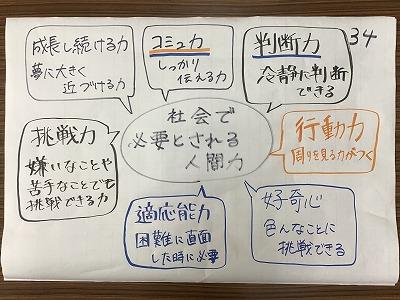 34
成長し続ける力
夢に大きく
近づける力
コミュ力
しっかり
伝える力
判断力
冷静に判断
できる
社会で
必要とされる
人間力
挑戦力
嫌いなことや
苦手なことでも
挑戦できる力
行動力
周りを見る力がつく
適応能力
困難に直面
した時に必要
好奇心
色んなことに
挑戦できる